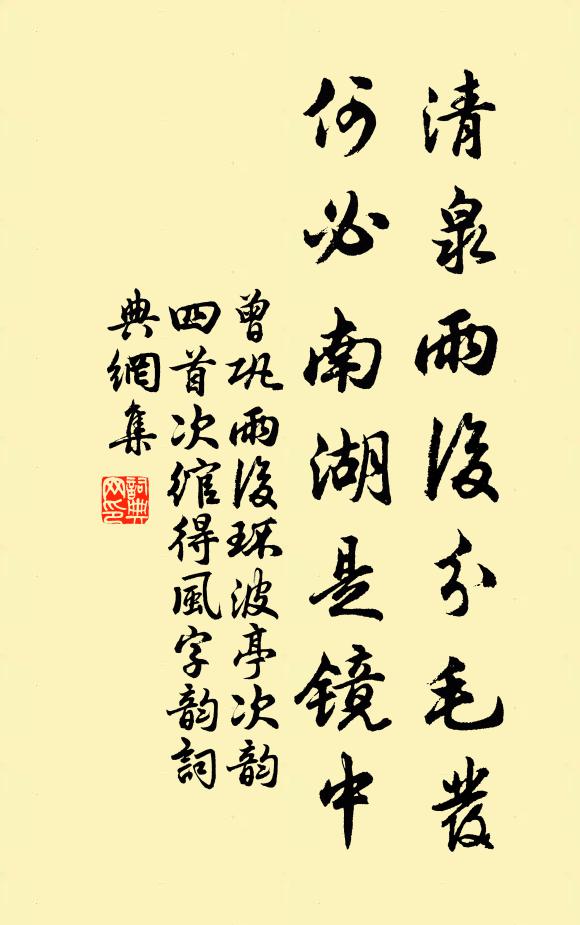 清泉雨後分毛髮
何必南湖是鏡中
曾巩雨後環波亭次韵
四首次綰得風字韵詞
典網集
詞典網印